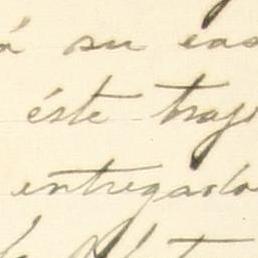 á su cas
éste traj
entregado